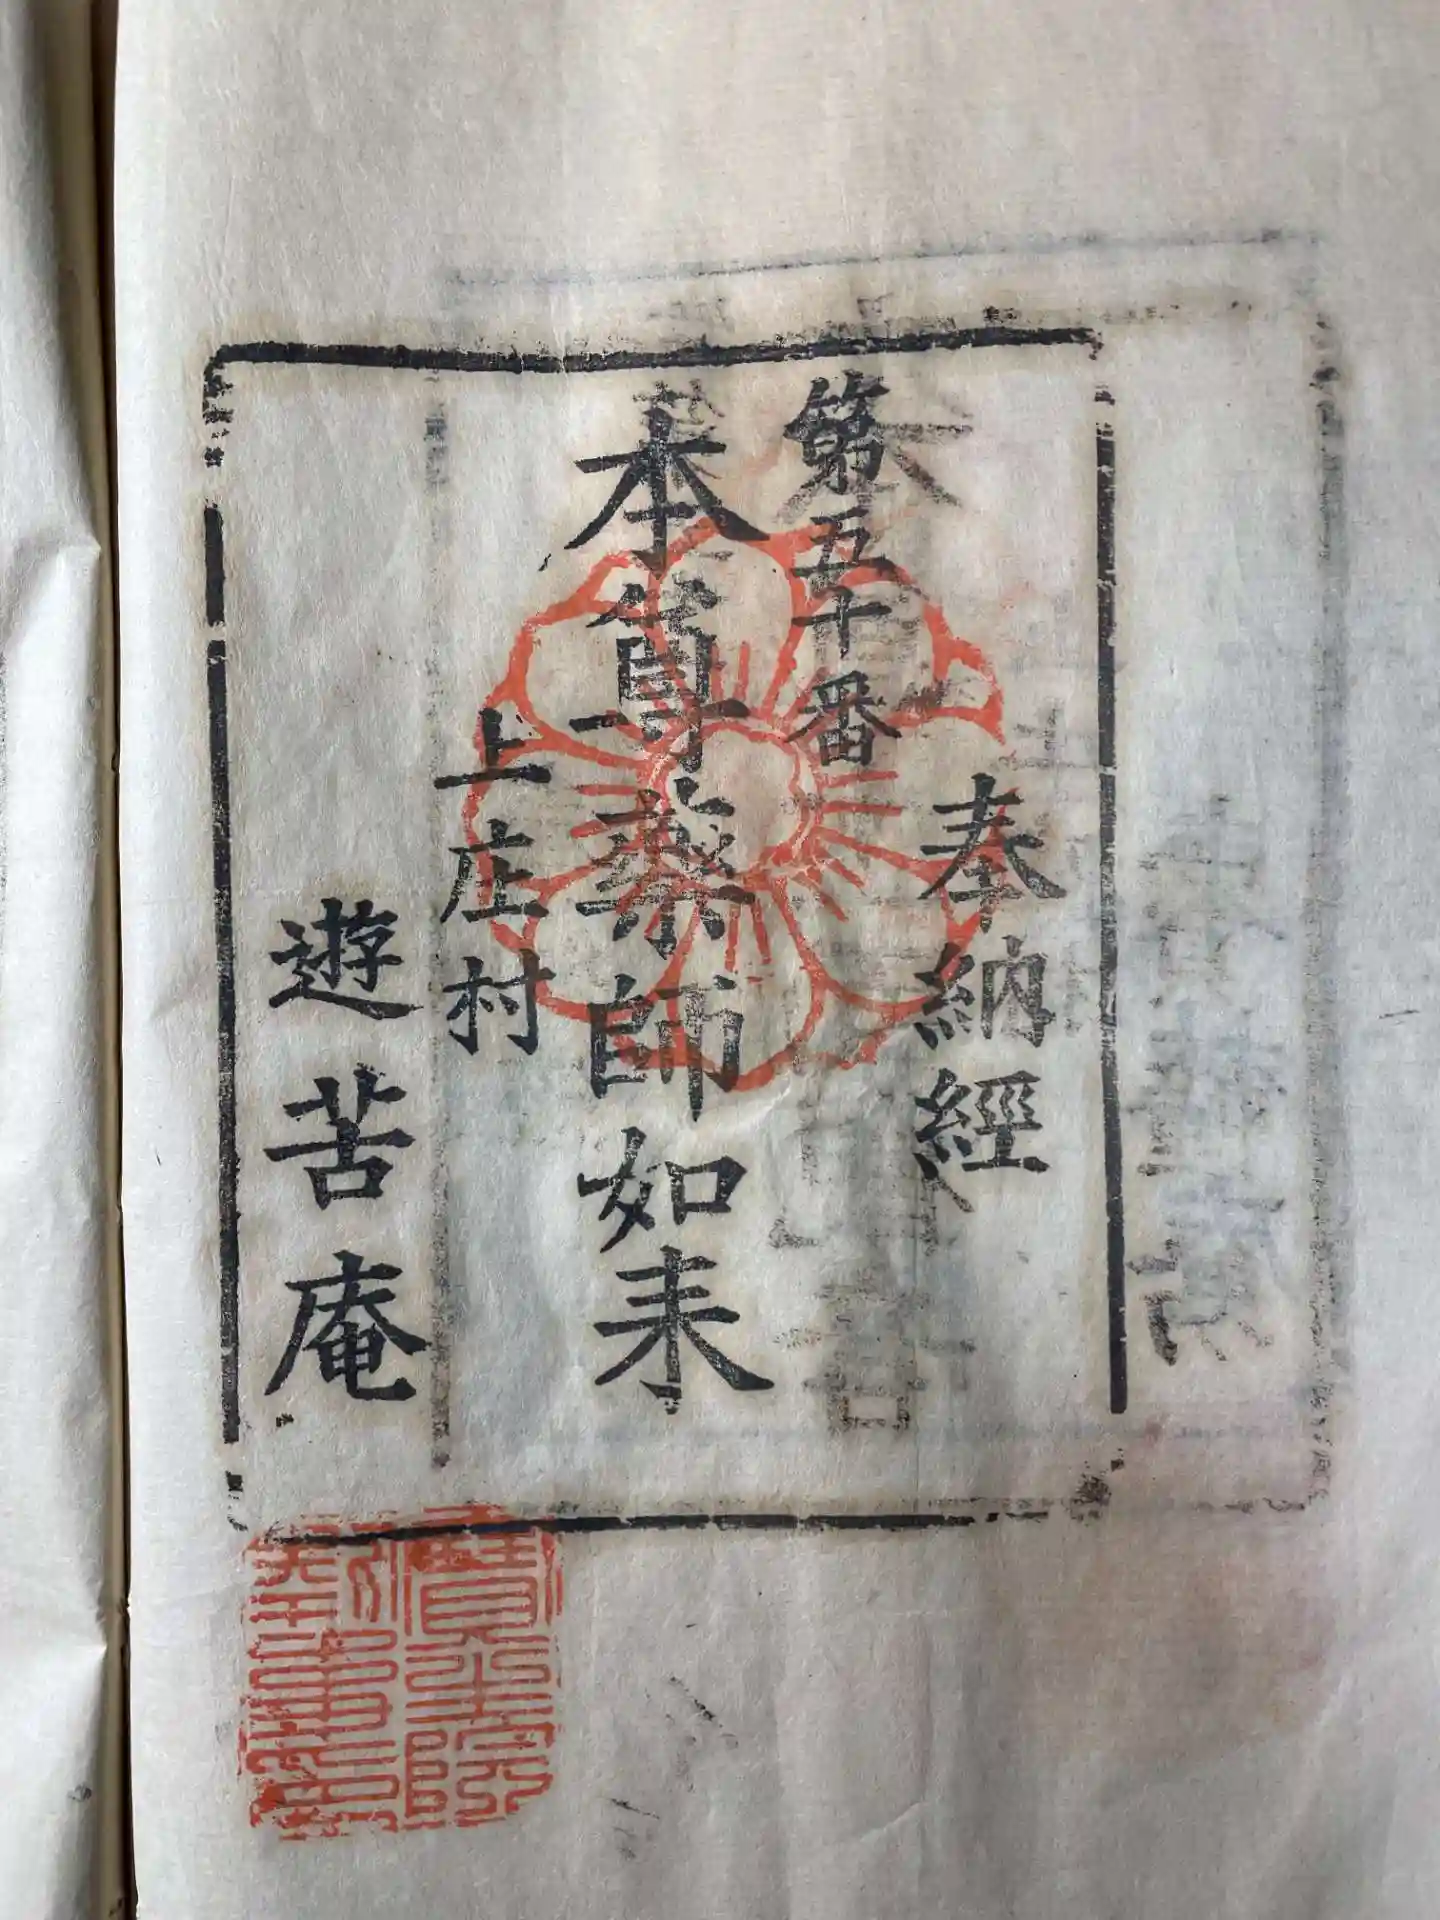 奉納經
第五十番
本尊薬師如来
上庄村
遊苦庵